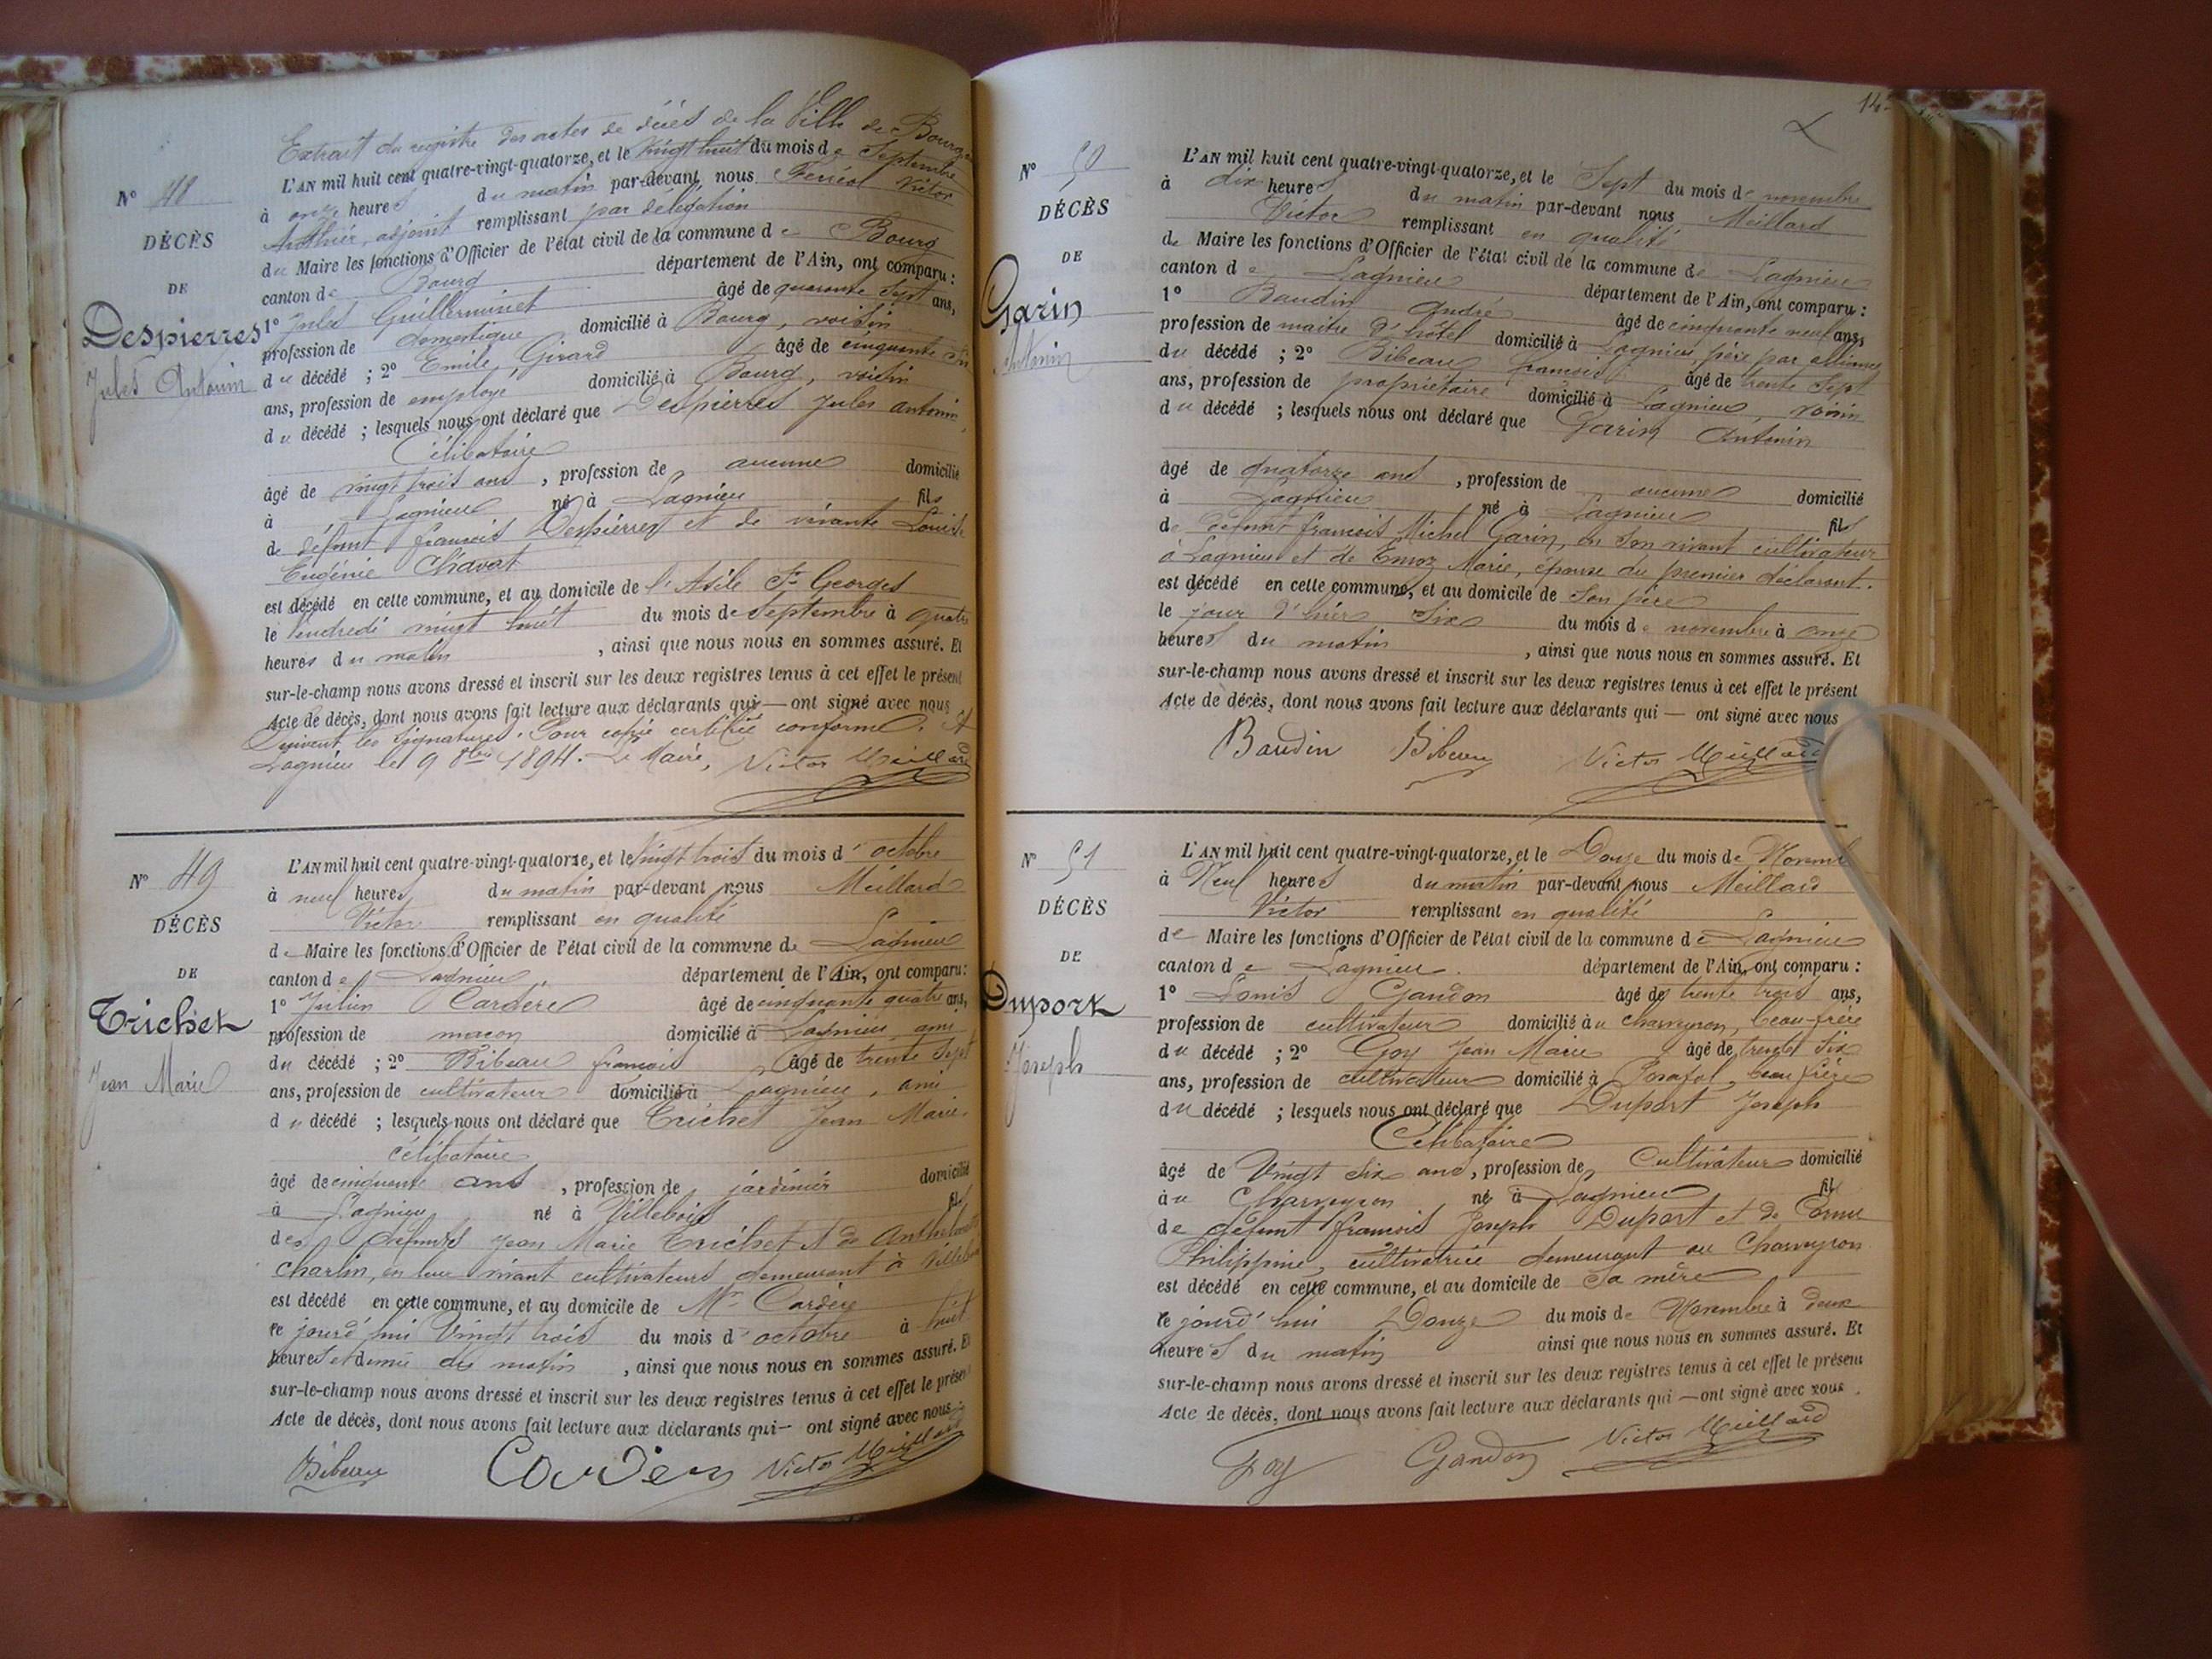 Extrait du registre des actes de décès de la Ville de Bourg
N° 48
DÉCÈS
DE
Despierres
Jules Antonin
L'AN mil huit cent quatre-vingt-quatorze, et le vingt huit du mois de Septembre
à onze heures du matin par-devant nous Ferréol Victor
adjoint remplissant par délégation
du Maire les fonctions d'Officier de l'état civil de la commune de Bourg
canton de Bourg département de l'Ain, ont comparu :
1° Jules Guillerminet âgé de quarante sept ans,
profession de domestique domicilié à Bourg, voisin
du décédé ; 2° Emile Girard âgé de cinquante six
ans, profession de employé domicilié à Bourg, voisin
du décédé ; lesquels nous ont déclaré que Despierres Jules antonin,
Célibataire
âgé de vingt trois ans, profession de aucune domicilié
à Lagnieu né à Lagnieu fils
de défunt francois Despierres et de vivante Louise
Eugénie Chavat
est décédé en cette commune, et au domicile de l'Asile St Georges
le Vendredi vingt huit du mois de Septembre à quatre
heures du matin, ainsi que nous nous en sommes assuré. Et
sur-le-champ nous avons dressé et inscrit sur les deux registres tenus à cet effet le présent
Acte de décès, dont nous avons fait lecture aux déclarants qui — ont signé avec nous
Suivent les signatures. Pour copie certifiée conforme. A
Lagnieu le 9 8bre 1894. Le Maire, Victor Meillard
N° 49
DÉCÈS
DE
Trichet
Jean Marie
L'AN mil huit cent quatre-vingt-quatorze, et le Vingt trois du mois d'octobre
à neuf heures du matin par-devant nous Meillard
Victor remplissant en qualité
de Maire les fonctions d'Officier de l'état civil de la commune de Lagnieu
canton de Lagnieu département de l'Ain, ont comparu :
1° Julien Cardère âgé de cinquante quatre ans,
profession de maçon domicilié à Lagnieu, ami
du décédé ; 2° Bibeau francois âgé de trente Sept
ans, profession de cultivateur domicilié à Lagnieu, ami
du décédé ; lesquels nous ont déclaré que Trichet Jean Marie,
célibataire
âgé de cinquante ans, profession de jardinier domicilié
à Lagnieu né à Villebois fils
des défunts Jean Marie Trichet et de Anthelmette
Charlin, en leur vivant cultivateurs demeurant à Villebois
est décédé en cette commune, et au domicile de Mr Cardère
ce jourd'hui Vingt trois du mois d'octobre à huit
heures et demie du matin, ainsi que nous nous en sommes assuré. Et
sur-le-champ nous avons dressé et inscrit sur les deux registres tenus à cet effet le présent
Acte de décès, dont nous avons fait lecture aux déclarants qui — ont signé avec nous
Bibeau Cardere Victor Meillard
14
N° 50
DÉCÈS
DE
Garin
Antonin
L'AN mil huit cent quatre-vingt-quatorze, et le Sept du mois de novembre
à dix heures du matin par-devant nous Meillard
Victor remplissant en qualité
de Maire les fonctions d'Officier de l'état civil de la commune de Lagnieu
canton de Lagnieu département de l'Ain, ont comparu :
1° Baudin André âgé de cinquante neuf ans,
profession de maitre d'hôtel domicilié à Lagnieu, père par alliance
du décédé ; 2° Bibeau francois âgé de trente Sept
ans, profession de propriétaire domicilié à Lagnieu, voisin
du décédé ; lesquels nous ont déclaré que Garin Antonin
âgé de quatorze ans, profession de aucune domicilié
à Lagnieu né à Lagnieu fils
de défunt francois Michel Garin, en Son vivant cultivateur
à Lagnieu et de Marie, épouse du premier déclarant.
est décédé en cette commune, et au domicile de Son père
le jour d'hier Six du mois de novembre à onze
heures du matin, ainsi que nous nous en sommes assuré. Et
sur-le-champ nous avons dressé et inscrit sur les deux registres tenus à cet effet le présent
Acte de décès, dont nous avons fait lecture aux déclarants qui — ont signé avec nous
Baudin Bibeau Victor Meillard
N° 51
DÉCÈS
DE
Duport
Joseph
L'AN mil huit cent quatre-vingt-quatorze, et le Douze du mois de Novemb
à Neuf heures du matin par-devant nous Meillard
Victor remplissant en qualité
de Maire les fonctions d'Officier de l'état civil de la commune de Lagnieu
canton de Lagnieu. département de l'Ain, ont comparu :
1° Louis Gandon âgé de trente trois ans,
profession de cultivateur domicilié au Charveyron, beau-frère
du décédé ; 2° Goy Jean Marie âgé de trente Six
ans, profession de cultivateur domicilié à Posafol, beau frère
du décédé ; lesquels nous ont déclaré que Duport Joseph
Célibataire
âgé de Vingt Six ans, profession de Cultivateur domicilié
au Charveyron né à Lagnieu fils
de défunt francois Joseph Duport et de
Philippine, cultivatrice demeurant au Charveyron
est décédé en cette commune, et au domicile de Sa mère
ce jourd'hui Douze du mois de Novembre à deux
heures du matin ainsi que nous nous en sommes assuré. Et
sur-le-champ nous avons dressé et inscrit sur les deux registres tenus à cet effet le présent
Acte de décès, dont nous avons fait lecture aux déclarants qui — ont signé avec nous.
Goy Gandon Victor Meillard